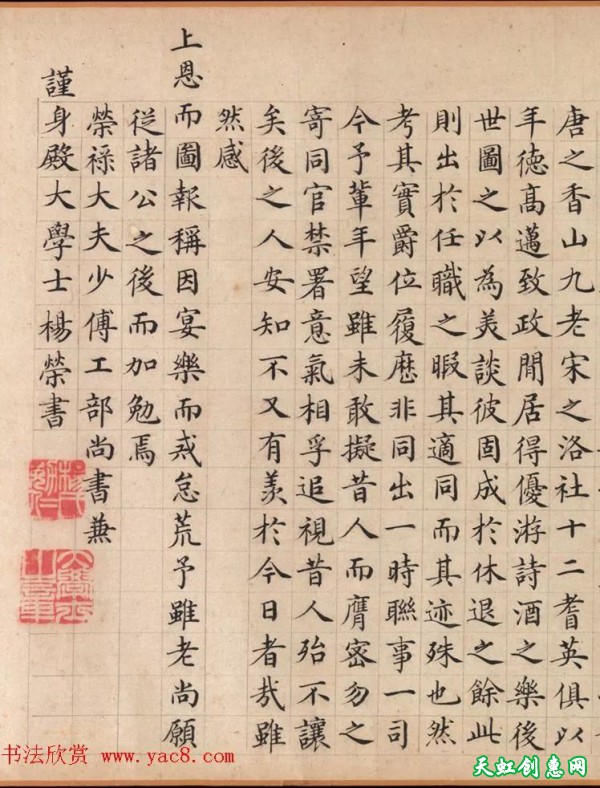 唐之香山九老宋之洛社十二耆英俱以
年德髙邁致政閒居得優游詩酒之樂後
世圖之以為美談彼固成於休退之餘此
則出於任職之暇其適同而其迹殊也然
考其實爵位履歷非同出一時聯事一司
今予輩年望雖未敢擬昔人而膺密勿之
寄同官禁署意氣相孚追視昔人殆不讓
矣後之人安知不又有羨於今日者哉雖
然感
上恩而圖報稱因宴樂而戒怠荒予雖老尚願
從諸公之後而加勉焉
榮祿大夫少傅工部尚書兼
謹身殿大學士楊榮書
书法欣赏 www.yac8.com
天虹创惠网